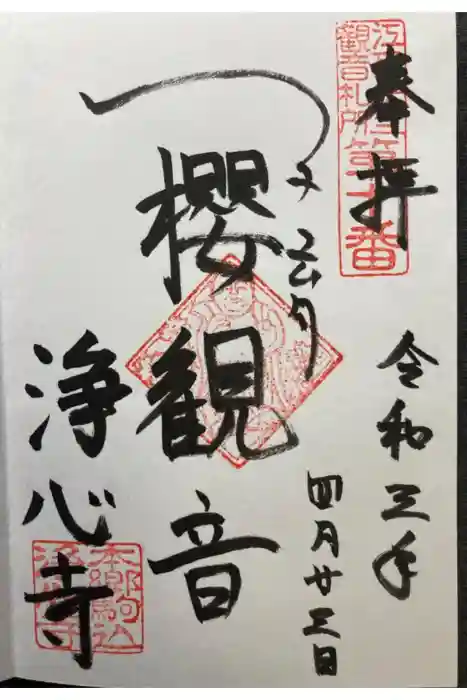 奉拝
観音札所第十番
令和三年
四月廿三日
櫻観音
浄心寺
本郷駒込